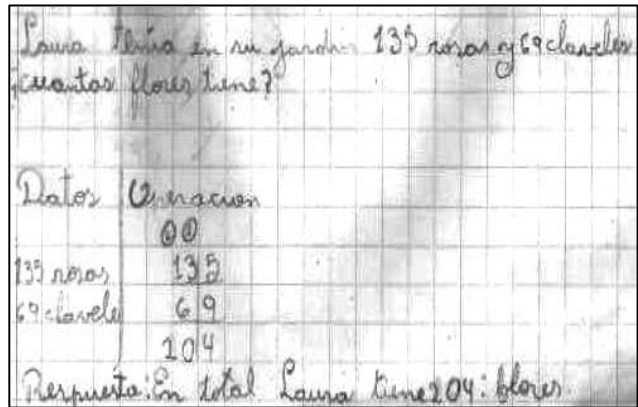 Laura tenia en su jardin 135 rosas y 69 claveles
¿cuantas flores tiene?
Datos Operacion
00
135 rosas 135
69 clavele 69
204
Respuesta: En total Laura tiene 204: flores.